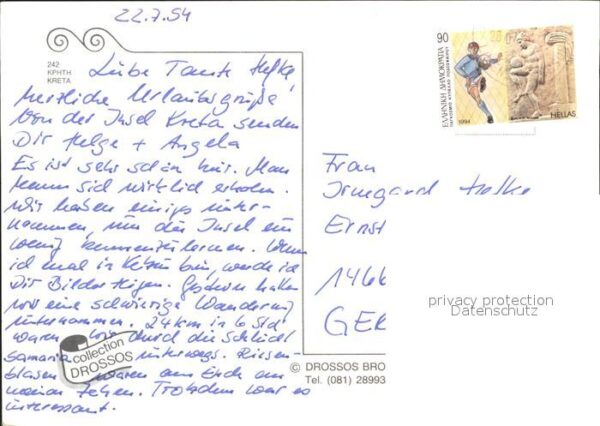 22.7.94
242
ΚΡΗΤΗ
KRETA
Liebe Tante Helke,
herzliche Urlaubsgrüße
von der Insel Kreta senden
Dir Helge + Angela
Es ist sehr schön hier. Man
kann sich wirklich erholen.
Wir haben einiges unter-
nommen, um die Insel ein
wenig kennenzulernen. Wenn
ich mal in bin, werde ich
Dir Bilder zeigen. Gestern hatten
wir eine schwierige Wanderung
unternommen. 24 km in 6 Std.
waren wir durch die Schlucht
Samaria unterwegs. Riesen-
blasen waren am Ende an
meinen Zehen. Trotzdem war es
interessant.
collection
DROSSOS
90
ΕΛΛΗΝΙΚΗ ΔΗΜΟΚΡΑΤΙΑ
1994
HELLAS
Frau
Irmgard Helke
Ernst
1466
GER
privacy protection
Datenschutz
© DROSSOS BRO
Tel. (081) 28993